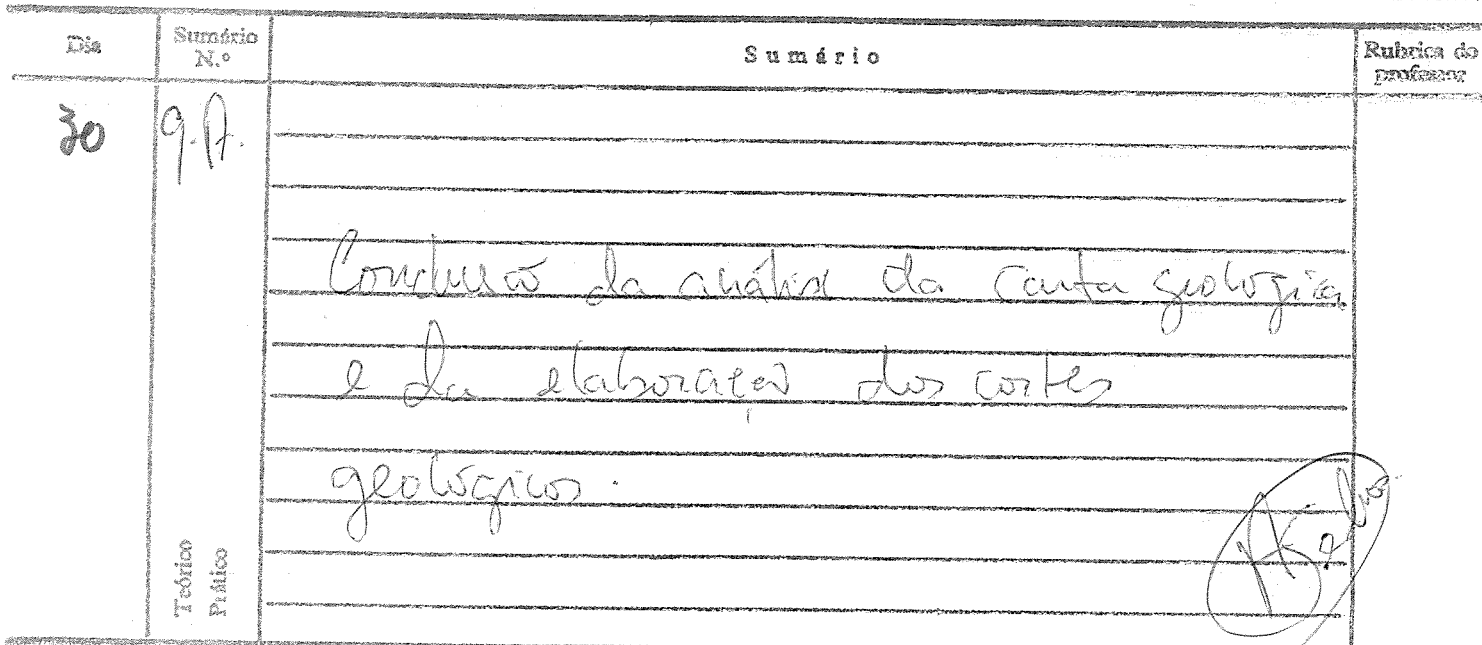 Dia
Sumário
N.º
Sumário
Rubrica do
professor
30
Conclusão da análise da carta geológica
e da elaboração dos cortes
geológicos.
Teórico
Prático